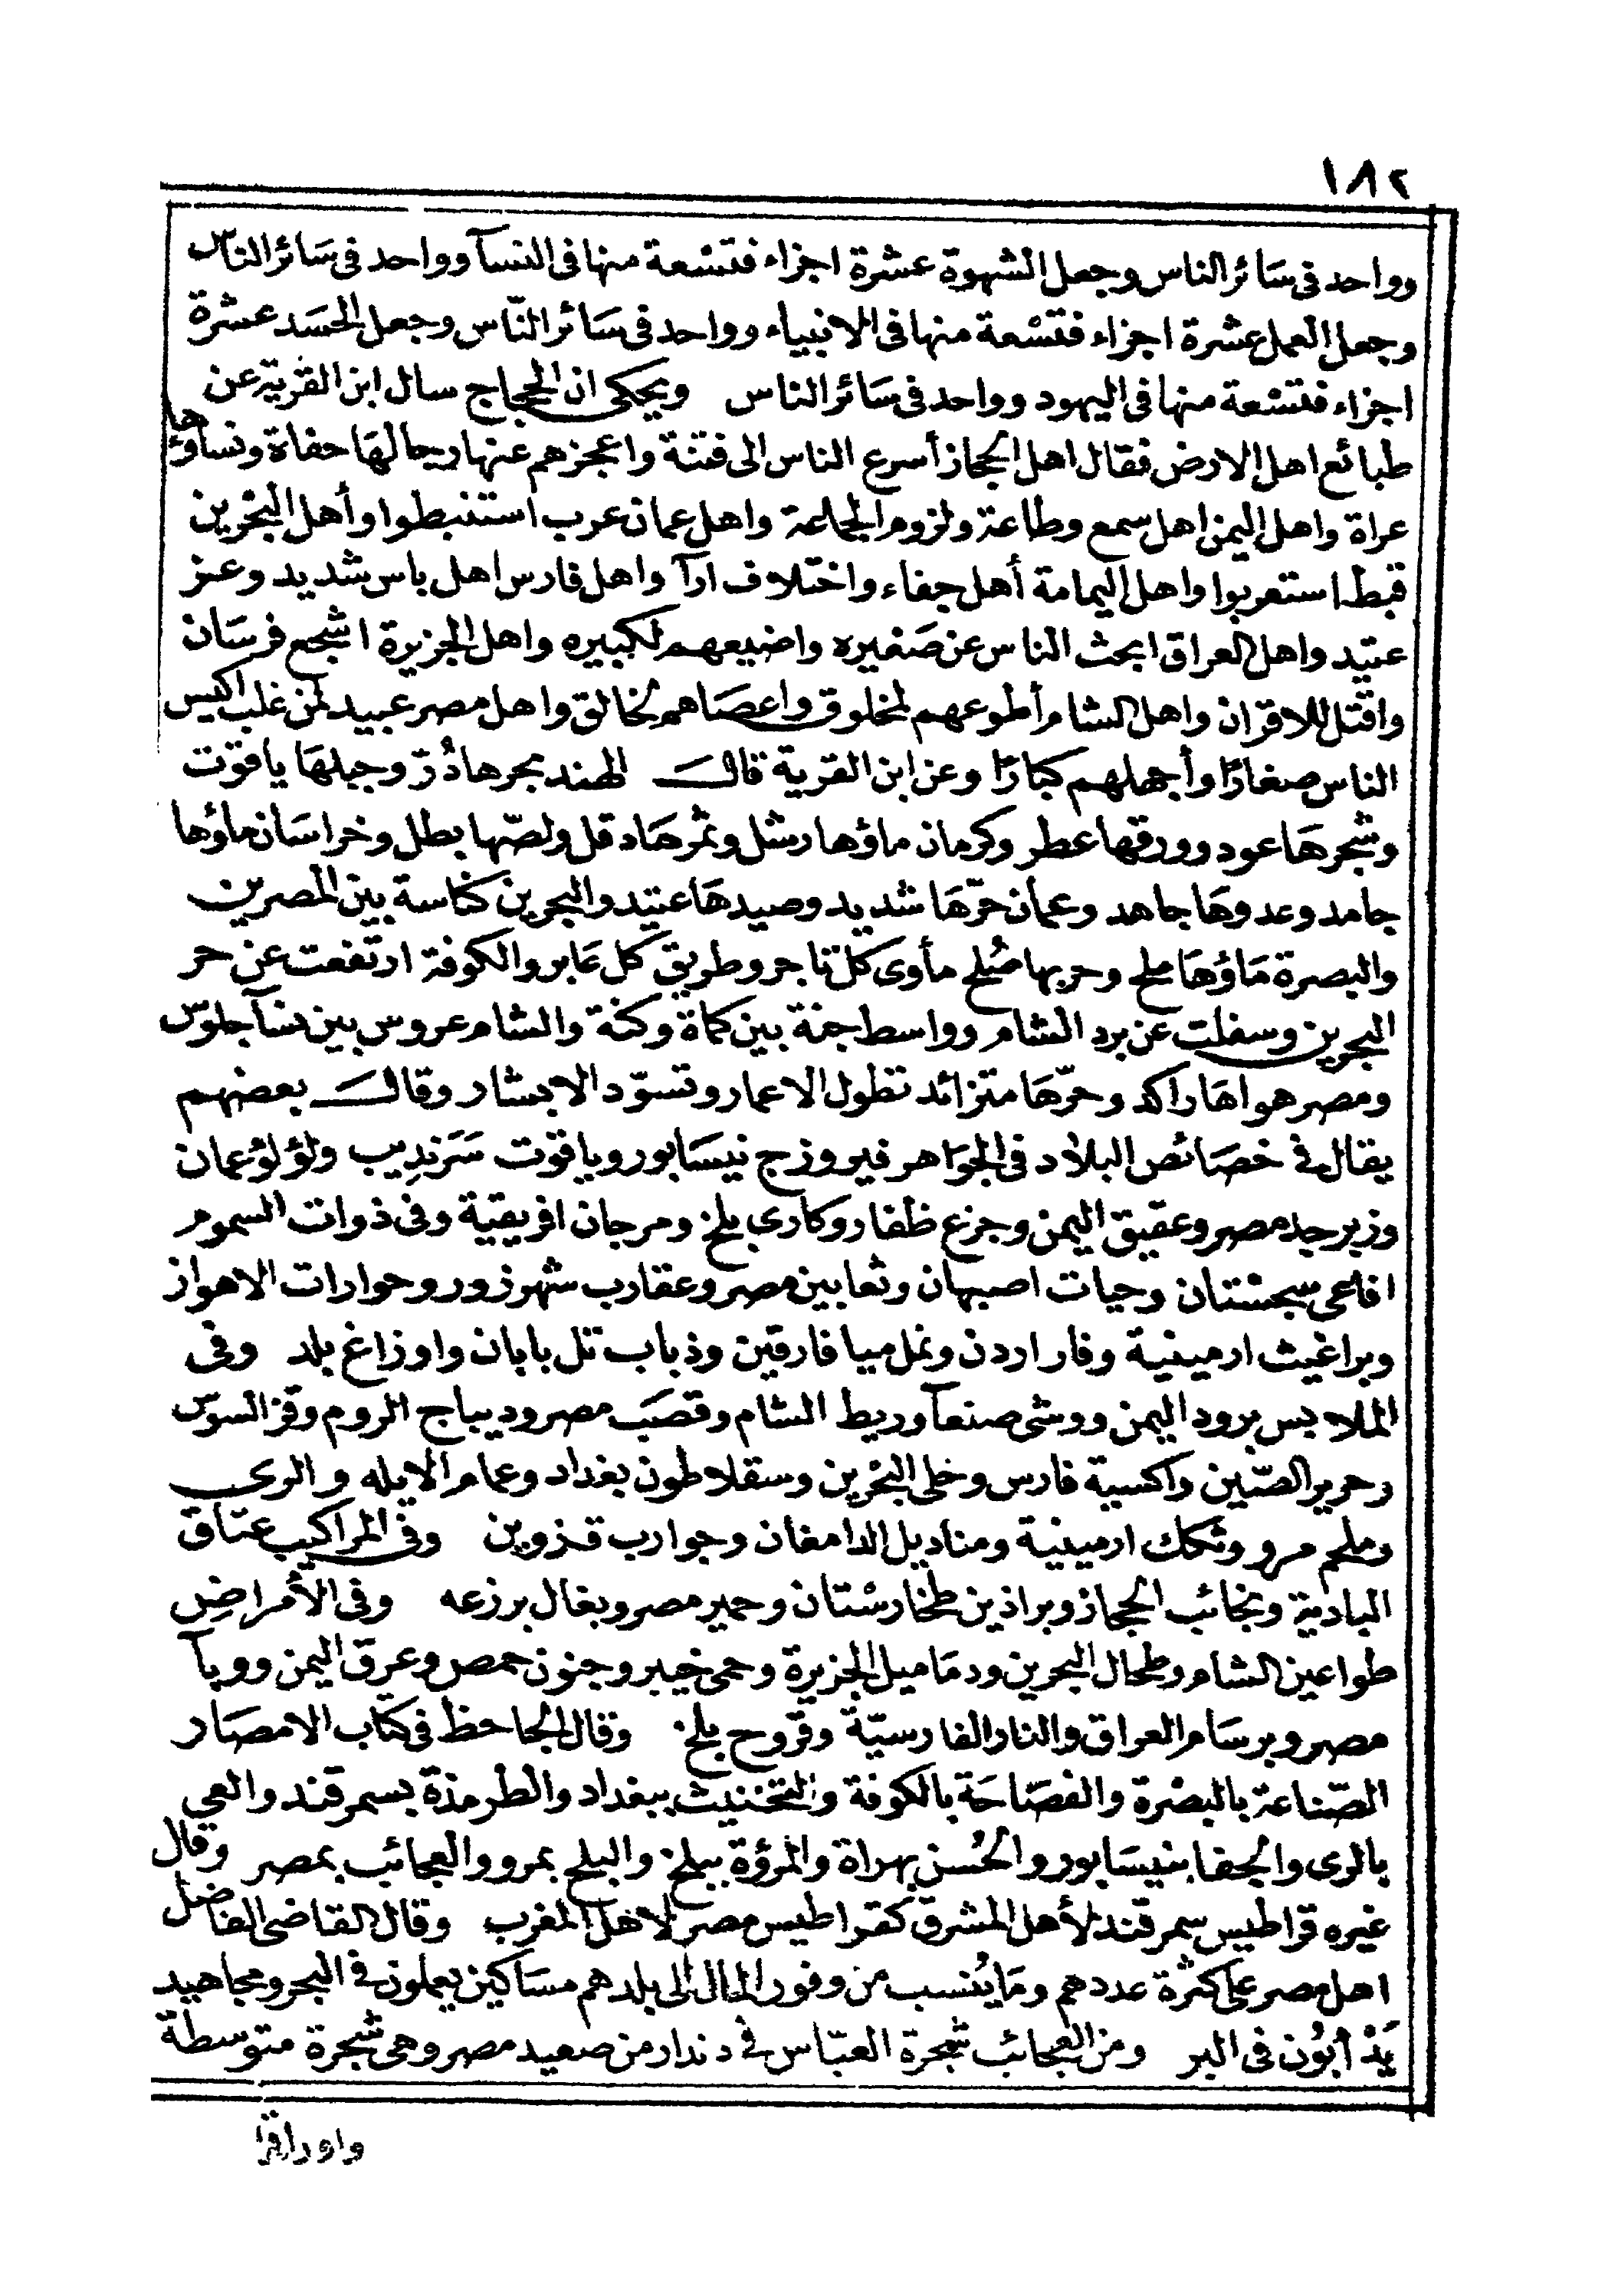 ١٨٢
وواحد فى سَائر الناس وجعل الشهوة عشرة اجزاء فتسْعة منها فى النسآ وواحد فى سَائر الناس
وجعل العمل عشرة اجزاء فتسْعة منها فى الانبياء وواحد فى سَائر النّاس وجعل الحسَد عشرة
اجزاء فتسْعة منها فى اليهود وواحد فى سَائر الناس ويحكى ان الحجاج سال ابن القرّية عن
طبائع اهل الارض فقال اهل الحجاز أسرع الناس الى فتنة واعجزهم عنها رجالهَا حفاة ونساؤها
عراة واهل اليمن اهل سمع وطاعة ولزوم الجماعة واهل عمان عرب استنبطوا وأهل البحْرين
قبط استعربوا واهل اليمامة أهل جفاء واختلاف ارآ واهل فارس اهل باس شديد وعز
عتيد واهل العراق ابحث الناس عن صَغيره واضيعهم لكبيره واهل الجزيرة اشجع فرسَان
واقتل للاقران واهل الشام أطوعهم لمخلوق واعصَاهم لخالق واهل مصر عبيد لمن غلب اكيس
الناس صغارًا وأجهلهم كبارًا وعن ابن القرية قال الهند بحرها دُرّ وجبلهَا ياقوت
وشجرهَا عود وورقها عطر وكرمان ماؤها وشل وثمرهَا دقل ولصّها بطل وخراسَان ماؤها
جامد وعدوهَا جاهد وعمان حرّهَا شديد وصيدهَا عتيد والبحرين كناسة بين المصرين
والبصرة مَاؤهَا ملح وحربها صُلح مأوى كل تاجر وطريق كل عَابر والكوفة ارتفعت عن حر
البحرين وسفلت عن برد الشام وواسط جنة بين كماة وكنة والشام عروس بين نسآ جلوس
ومصر هواهَا راكد وحرّهَا متزائد تطول الاعمار وتسوّد الابشار وقال بعضهم
يقال فى خصَائص البلاد فى الجوَاهر فيروزج نيسَابور وياقوت سَرَندِيب ولؤلؤ عمان
وزبرجد مصر وعقيق اليمن وجزع ظفار وكارى بلخ ومرجان افريقية وفى ذوات السموم
افاعى سجسْتان وحيات اصبهان وثعابين مصر وعقارب شهرزور وجرارات الاهواز
وبراغيث ارمينية وفار اردن ونمل ميا فارقين وذباب تل بابان واوزاغ بلد وفى
الملابس برود اليمن ووشى صنعآ وريط الشام وقصَب مصر وديباج الروم وقز السوس
وحرير الصّين واكسية فارس وحلى البحْرين وسقلاطون بغداد وعمام الابله والرى
وملحم مرو وتكك ارمينية ومناديل الدامغان وجوارب قزوين وفى المراكيب عتاق
البادية ونجائب الحجاز وبراذين طخارسْتان وحمير مصر وبغال برزعه وفى الأمراض
طواعين الشام وطحال البحرين ودمَاميل الجزيرة وحمى خيبر وجنون حمص وعرق اليمن ووبآ
مصر وبرسام العراق والنار الفارسيّة وقروح بلخ وقال الجاحظ فى كتاب الامصَار
الصّناعة بالبصْرة والفصَاحَة بالكوفة والتخنيث ببغداد والطرمذة بسمرقند والعى
بالرى والجفا بنيسَابور والحُسن بهراة والمرؤة ببلخ والبلح بمرو والعجائب بمصر وقال
غيره قراطيس سمرقند لأهل المشرق كقراطيس مصر لاهل المغرب وقال القاضى الفاضل
اهل مصر على كثرة عددهم ومَا يُنسب من وفور المال الى بلدهم مسَاكين يعملون فى البحر ومجاهيد
يَدْأبُون فى البر ومن العجائب شجرة العبّاس فى دندار من صعيد مصر وهى شجرة متوسطة
واوراقها